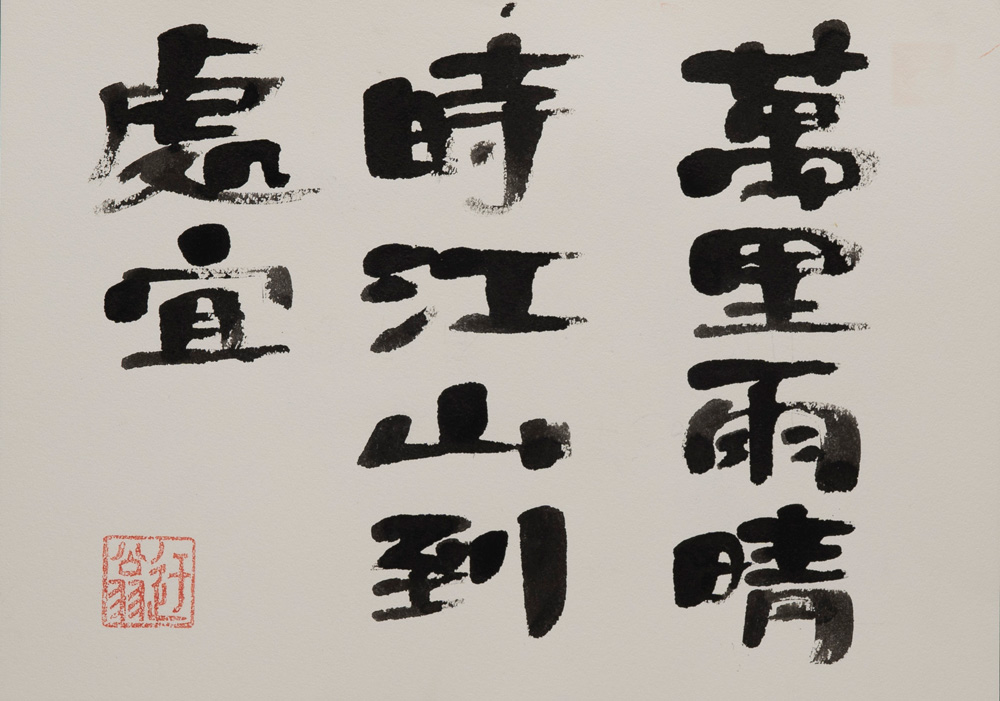 萬里雨晴
時江山到
處宜